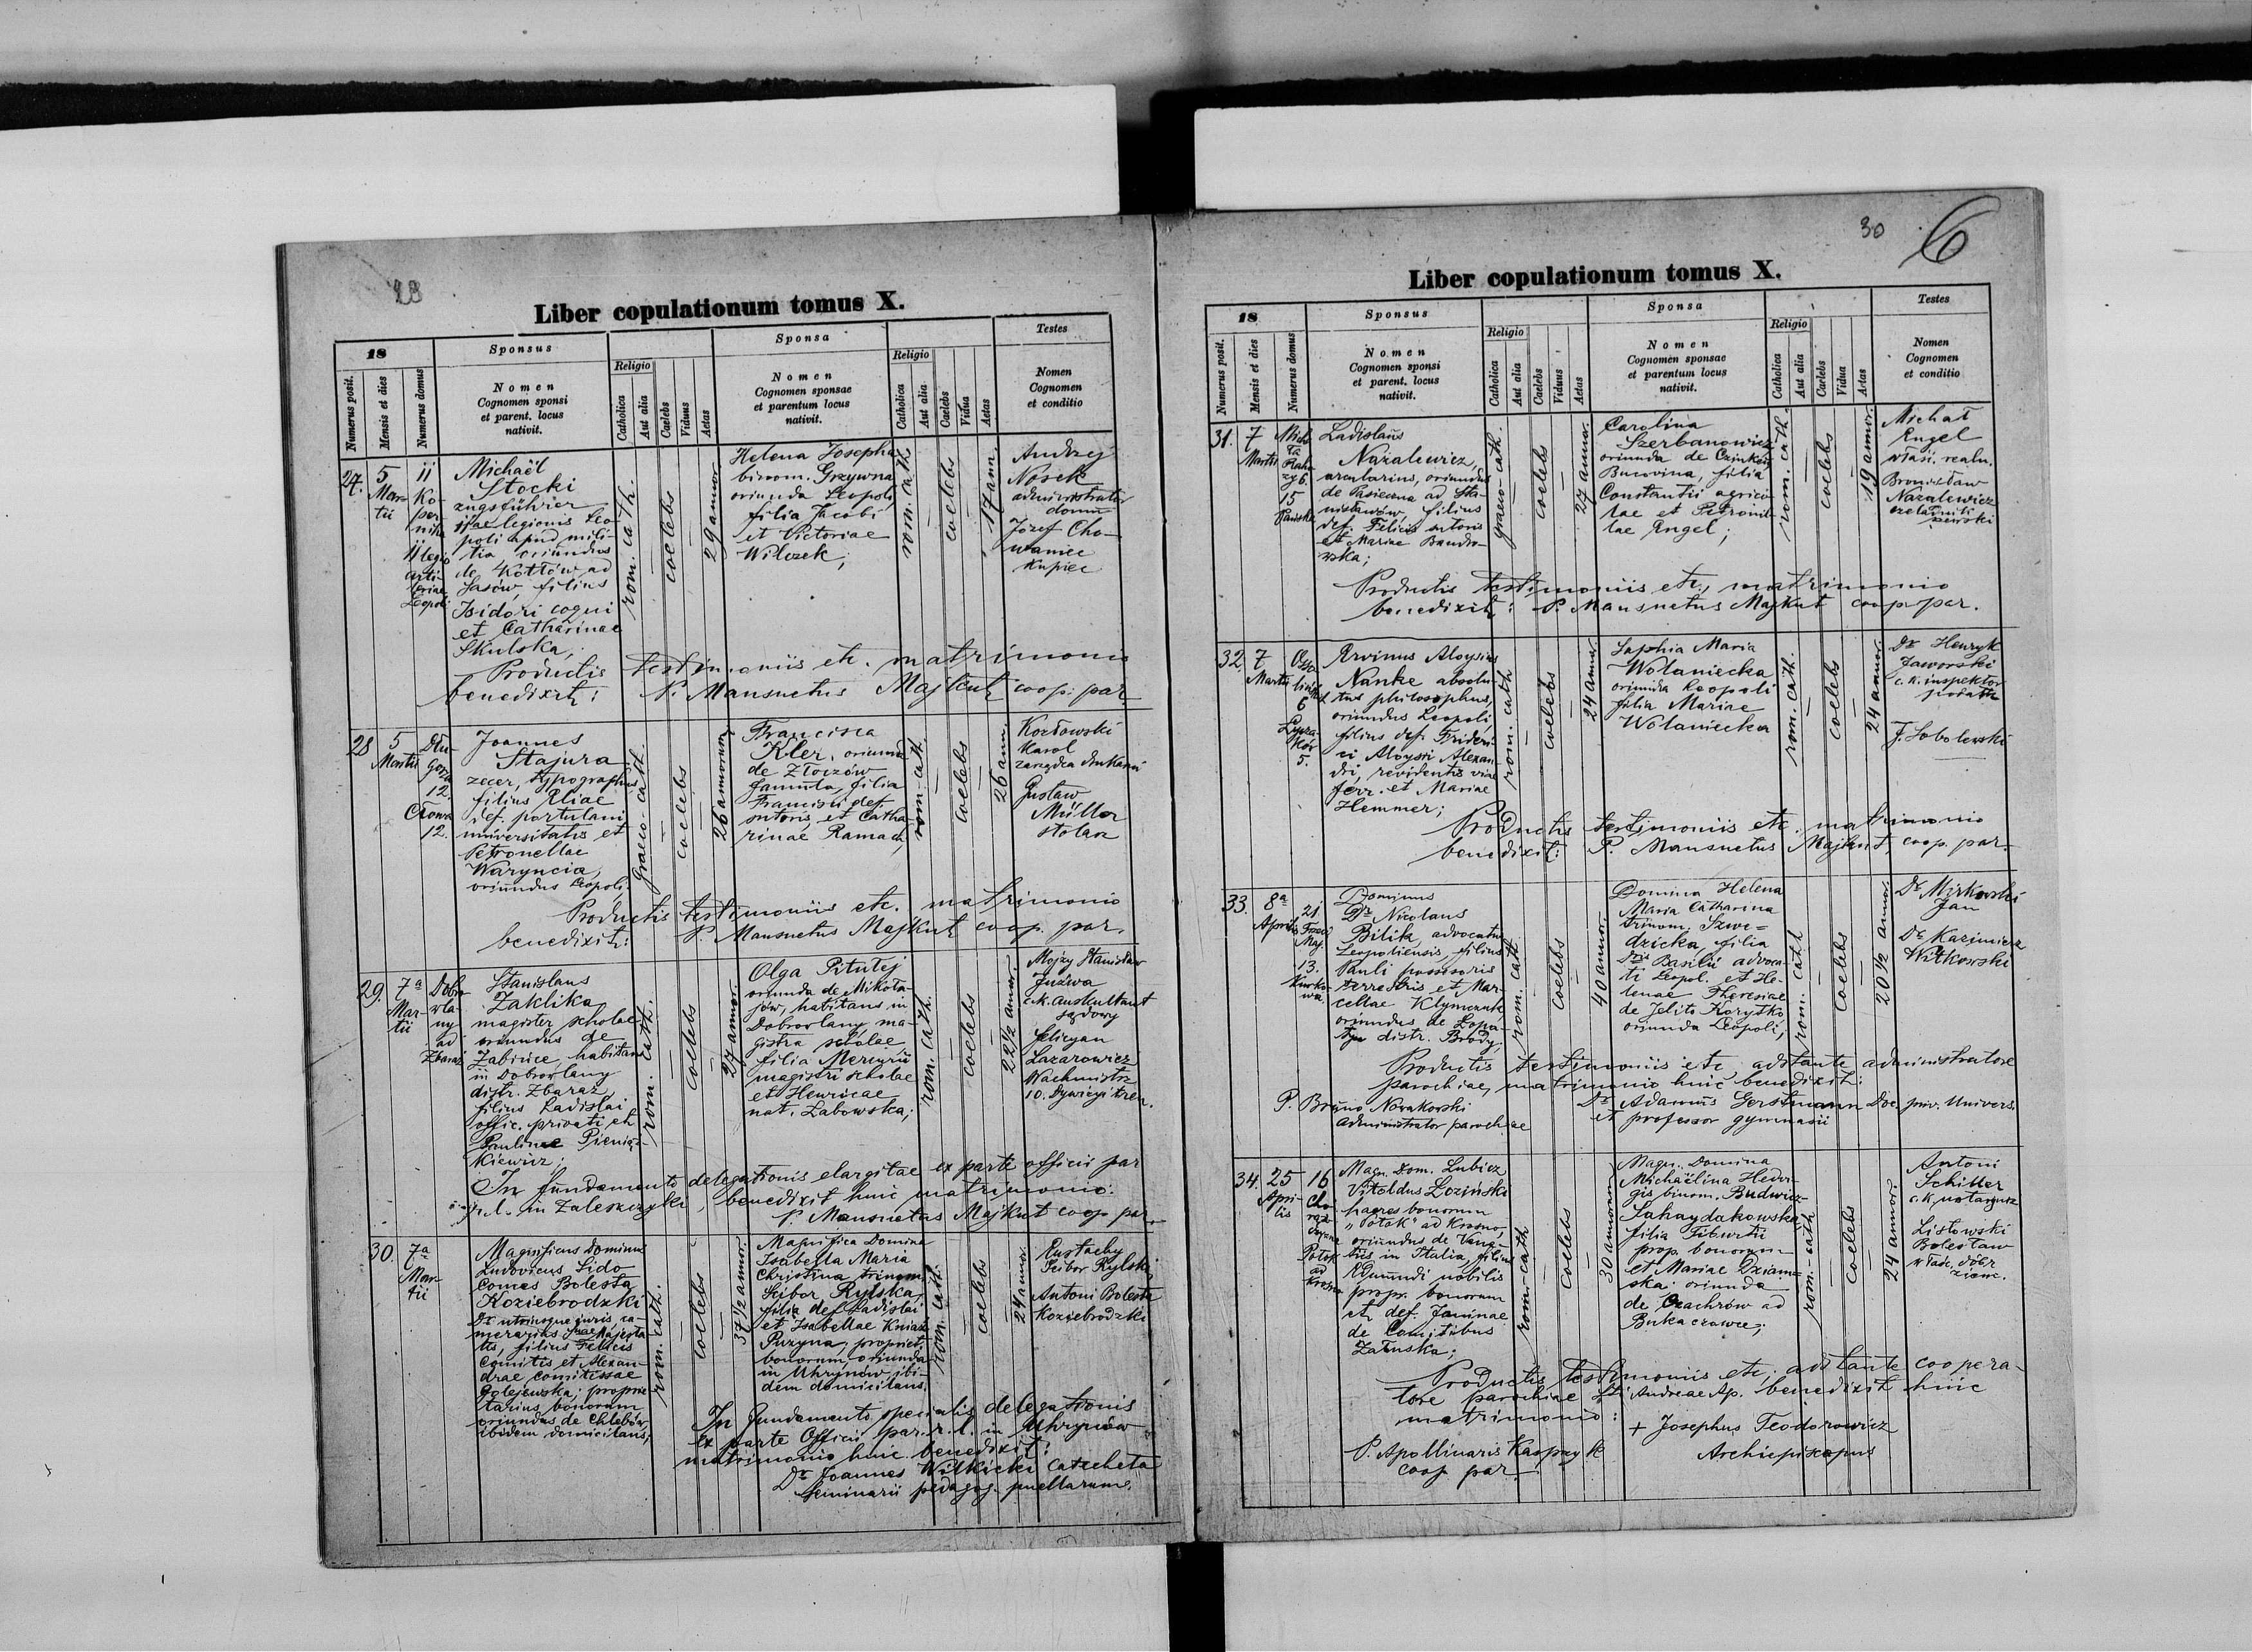 28
Liber copulationum tomus X.
18
Sponsus
Sponsa
Testes
Numerus posit.
Mensis et dies
Numerus domus
Nomen
Cognomen sponsi
et parent. locus
nativit.
Religio
Catholica
Aut alia
Caelebs
Viduus
Aetas
Nomen
Cognomen sponsae
et parentum locus
nativit.
Religio
Catholica
Aut alia
Caelebs
Vidua
Aetas
Nomen
Cognomen
et conditio
27.
5
Mar-
tii
11
Ko-
per-
nika
11 legio
arti-
leriae
Leopoli
Michaël
Stocki
zugsführer
legionis Leo-
poli apud mili-
tia oriundus
de Kołtów ad
Sasów, filius
Isidori coqui
et Catharinae
Skulska,
rom. cath.
coelebs
29 annor.
Helena Josepha
binom. Grzywna
oriunda Leopoli
filia Jacobi
et Victoriae
Wilczek;
rom. cath.
coelebs
17 ann.
Andrzej
Nosek
administrator
domu
Józef Cho-
waniec
kupiec
Productis testimoniis etc. matrimonio
benedixit: P. Mansuetus Majkut coop. par.
28
5
Martii
Dłu-
gosza
12.
12.
Joannes
Stajura
zecer, typographus
filius Eliae
def. portulani
universitatis et
Petronellae
Waryncia,
oriundus Leopoli.
graeco-cath.
coelebs
26 annorum
Francisca
Kler, oriunda
de Złoczów
famula, filia
Francisci def.
sutoris et Catha
rinae Ramach
rom-cath.
coelebs
26 ann.
Kozłowski
Karol
zarządca drukarni
Gustaw
Müller
stolarz
Productis testimoniis etc. matrimonio
benedixit: P. Mansuetus Majkut coop. par.
29.
7a
Mar-
tii
Dobro-
wla-
ny
ad
Zbaraż
Stanislaus
Zaklika
magister scholae
oriundus de
Zabińce, habitans
in Dobrowlany
distr. Zbaraż
filius Ladislai
offic. privati et
Paulinae Pienią-
kiewicz;
rom. cath.
coelebs
27 annor.
Olga Pitutej
oriunda de Mikoła-
jów, habitans in
Dobrowlany ma-
gistra scholae
filia Mercurii
magistri scholae
et Henricae
nat. Łabowska;
rom. cath.
coelebs
22 1/2 annor.
Mojży Stanisław
Juźwa
c.k. auskultant
sądowy
Felicyan
Łazarowicz
Wachmistrz
10. Dywizyi tren.
In fundamento delegationis elargitae ex parte officii par
r. l. in Zaleszczyki, benedixit huic matrimonio:
P. Mansuetus Majkut coop par.
30.
7a
Mar-
tii
Magnificus Dominus
Ludovicus Lido
Comes Bolesta
Koziebrodzki
Dr utriusque juris ca-
merarius Majesta
tis, filius Felicis
Comitis et Alexan-
drae comitissae
Golejewska; proprie
tarius bonorum
oriundus de Chlebów,
ibidem domicilans;
rom. cath.
coelebs
37 1/2 annor.
Magnifica Domina
Isabella Maria
Christina trinom.
Scibor Rylska,
filia def. Ladislai
et Isabellae Kniaź
Puzyna, propriet.
bonorum, oriunda
in Uhrynów ibi-
dem domicilans.
rom. cath.
coelebs
24 annor.
Eustachy
Ścibor Rylski
Antoni Bolesta
Koziebrodzki
In fundamento specialis delegationis
ex parte Officii par. r. l. in Uhrynów
matrimonio huic benedixit:
Dr Joannes Wilkicki catecheta
Seminarii pedagog. puellarum.
30
6
Liber copulationum tomus X.
18
Sponsus
Sponsa
Testes
Numerus posit.
Mensis et dies
Numerus domus
Nomen
Cognomen sponsi
et parent. locus
nativit.
Religio
Catholica
Aut alia
Caelebs
Viduus
Aetas
Nomen
Cognomen sponsae
et parentum locus
nativit.
Religio
Catholica
Aut alia
Caelebs
Vidua
Aetas
Nomen
Cognomen
et conditio
31.
7
Martii
15
Pańska
Ladislaus
Nazalewicz,
arcularius, oriundus
de Pasieczna ad Sta-
nisławów, filius
def. Felicis sutoris
et Mariae Bandro-
wska;
graeco-cath.
coelebs
27 annor.
Carolina
Szerbanowicz
oriunda de
Bucovina, filia
Constantii agrico-
lae et Petronil-
lae Engel;
rom. cath.
coelebs
19 annor.
Michał
Engel
właśc. realn.
Bronisław
Nazalewicz
czeladnik
szewski
Productis testimoniis etc., matrimonio
benedixit: P. Mansuetus Majkut coop. par.
32.
7
Martii
Osso-
lińsk
6
Łycza-
ków
5.
Ervinus Aloysius
Nanke absolu-
tus philosophus,
oriundus Leopoli,
filius def. Frideri-
ci Aloysii Alexan-
dri, revidentis viae
ferr. et Mariae
Hemmer;
rom. cath.
coelebs
24 annor.
Sophia Maria
Wołaniecka
oriunda Leopoli
filia Mariae
Wołaniecka
rom. cath.
coelebs
24 annor.
Dr Henryk
Jaworski
c.k. inspektor
podatk
J. Sobolewski
Productis testimoniis etc. matrimonio
benedixit: P. Mansuetus Majkut, coop. par.
33.
8a
Aprilis
21
Maj.
13.
Kurko-
wa
Dominus
Dr Nicolaus
Bilik, advocatus
Leopoliensis, filius
Pauli possesoris
terrestris et Mar-
cellae Klymczuk,
oriundus de Łopa-
tyn distr. Brody,
rom. cath.
coelebs
40 annor.
Domina Helena
Maria Catharina
trinom. Szwe-
dzicka, filia
Dris Basilii advoca-
ti Leopol. et He-
lenae Theresiae
de Jelita Korytko
oriunda Leopoli,
rom. cath
coelebs
20 1/2 annor.
Dr Mirkowski
Jan
Dr Kazimierz
Witkowski
Productis testimoniis etc, adstante administratore
parochiae, matrimonio huic benedixit:
P. Bruno Nowakowski
administrator parochiae
Dr Adamus Gerstmann Doc. priv. Univers.
et professor gymnasii
34.
25
Apri-
lis
16
Cho-
rąż-
czyzna
Potok
ad
Krosno
Magn. Dom. Lubicz
Vitoldus Łoziński
haeres bonorum
"Potok" ad Krosno,
oriundus de Vene-
tiis in Italia, filius
Edmundi nobilis
propr. bonorum
et def. Janinae
de Comitibus
Załuska;
rom-cath
coelebs
30 annorum
Magn. Domina
Michaëlina Hedvi-
gis binom. Budwicz-
Sahaydakowska
filia Tiburtii
prop. bonorum
et Mariae Dziama-
ska: oriunda
de Czachrów ad
Bukaczowce;
rom.-cath
coelebs
24 annor.
Antoni
Schiller
c.k. notaryusz
Listowski
Bolesław
właśc. dóbr
ziem.
Productis testimoniis etc; adstante coopera-
tore parochiae Sti Andreae Ap. benedixit huic
matrimonio:
+ Josephus Teodorowicz
Archiepiscopus
P. Apollinaris Kasprzyk
coop. par.